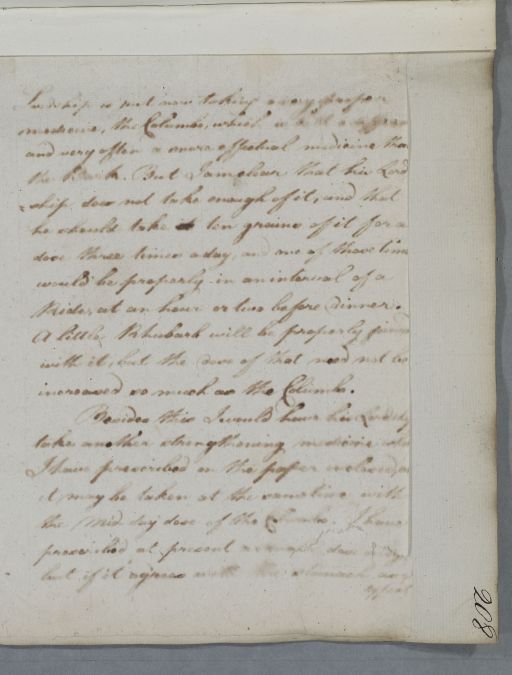 Lordship is not now taking a very proper
medicine, the Columbo, which is
and very often a more effectual medicine than
the Bark. But I am clear that his Lord
ship does not take enough of it, and that
he should take ten grains of it for a
dose three times a day, and one of those times
would be properly in an interval of a
Ride, at an hour or two before dinner.
A little Rhubarb will be properly joined
with it, but the dose of that need not be
increased so much as the Columbo.
Besides this I would have his Lordship
take another strengthening medicine
I have prescribed on the paper inclosed,
it may be taken at the same time with
the Mid day dose of the Columbo. I have
prescribed at present a small dose
but if it agrees with the stomach
208